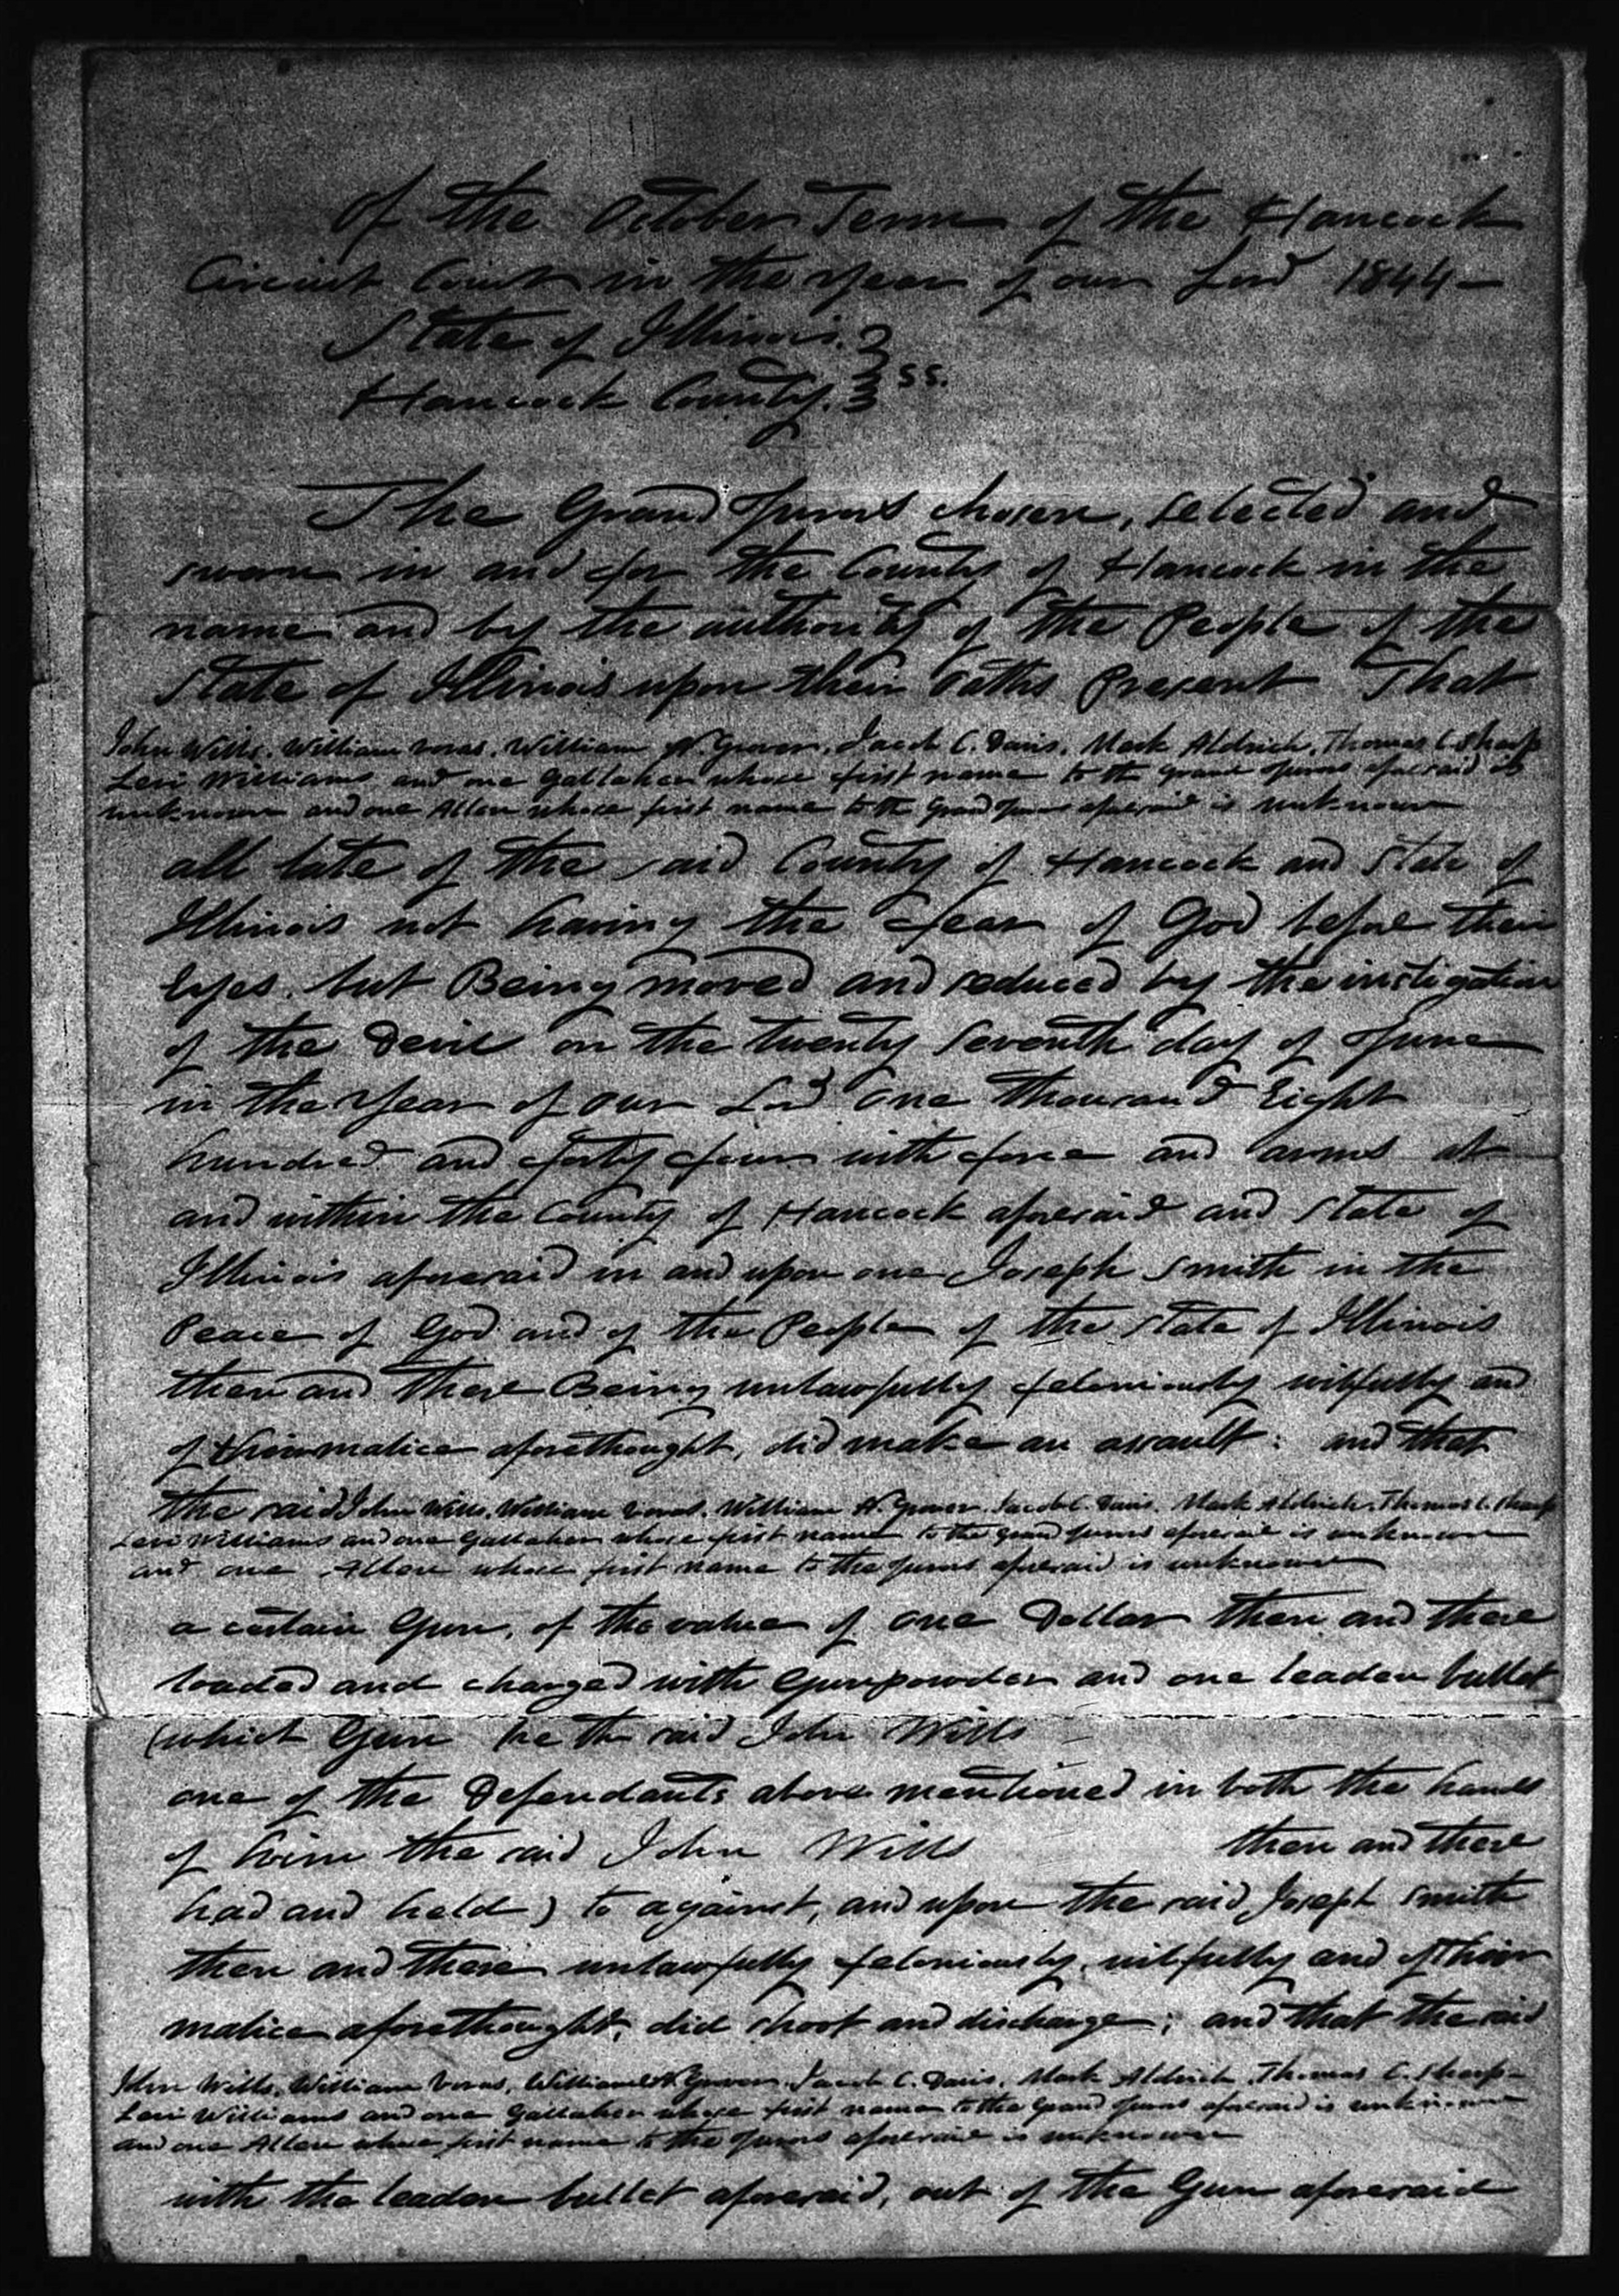 Of the October Term of the Hancock
Circuit Court in the year of our Lord 1844 —
State of Illinois. }
Hancock County. } ss.
The Grand Jurors chosen, selected and
sworn in and for the County of Hancock in the
name and by the authority of the People of the
State of Illinois upon their oaths Present That
John Wills, William Voras, William N. Grover, Jacob C. Davis, Mark Aldrich, Thomas C. Sharp
Levi Williams and one Gallaher whose first name to the Grand Jurors aforesaid is
unknown and one Allen whose first name to the Grand Jurors aforesaid is unknown
all late of the said County of Hancock and State of
Illinois not having the fear of God before their
Eyes. but Being moved and seduced by the instigation
of the Devil on the twenty seventh day of June
in the Year of our Lord one thousand Eight
hundred and forty four with force and arms at
and within the County of Hancock aforesaid and State of
Illinois aforesaid in and upon one Joseph Smith in the
Peace of God and of the People of the State of Illinois
then and there Being unlawfully feloniously wilfully and
of their malice aforethought, did make an assault: and that
the said John Wills, William Voras, William N. Grover, Jacob C. Davis, Mark Aldrich, Thomas C. Sharp
Levi Williams and one Gallaher whose first name to the Grand Jurors aforesaid is unknown
and one Allen whose first name to the Jurors aforesaid is unknown
a certain Gun, of the value of one Dollar then and there
loaded and charged with Gunpowder and one leaden bullet
(which Gun he the said John Wills
one of the Defendants above mentioned in both the hands
of him the said John Wills then and there
had and held) to against, and upon the said Joseph Smith
then and there unlawfully feloniously, wilfully and of their
malice aforethought, did shoot and discharge; and that the said
John Wills, William Voras, William N. Grover, Jacob C. Davis, Mark Aldrich, Thomas C. Sharp —
Levi Williams and one Gallaher whose first name to the Grand Jurors aforesaid is unknown
and one Allen whose first name to the Jurors aforesaid is unknown
with the leaden bullet aforesaid, out of the Gun aforesaid